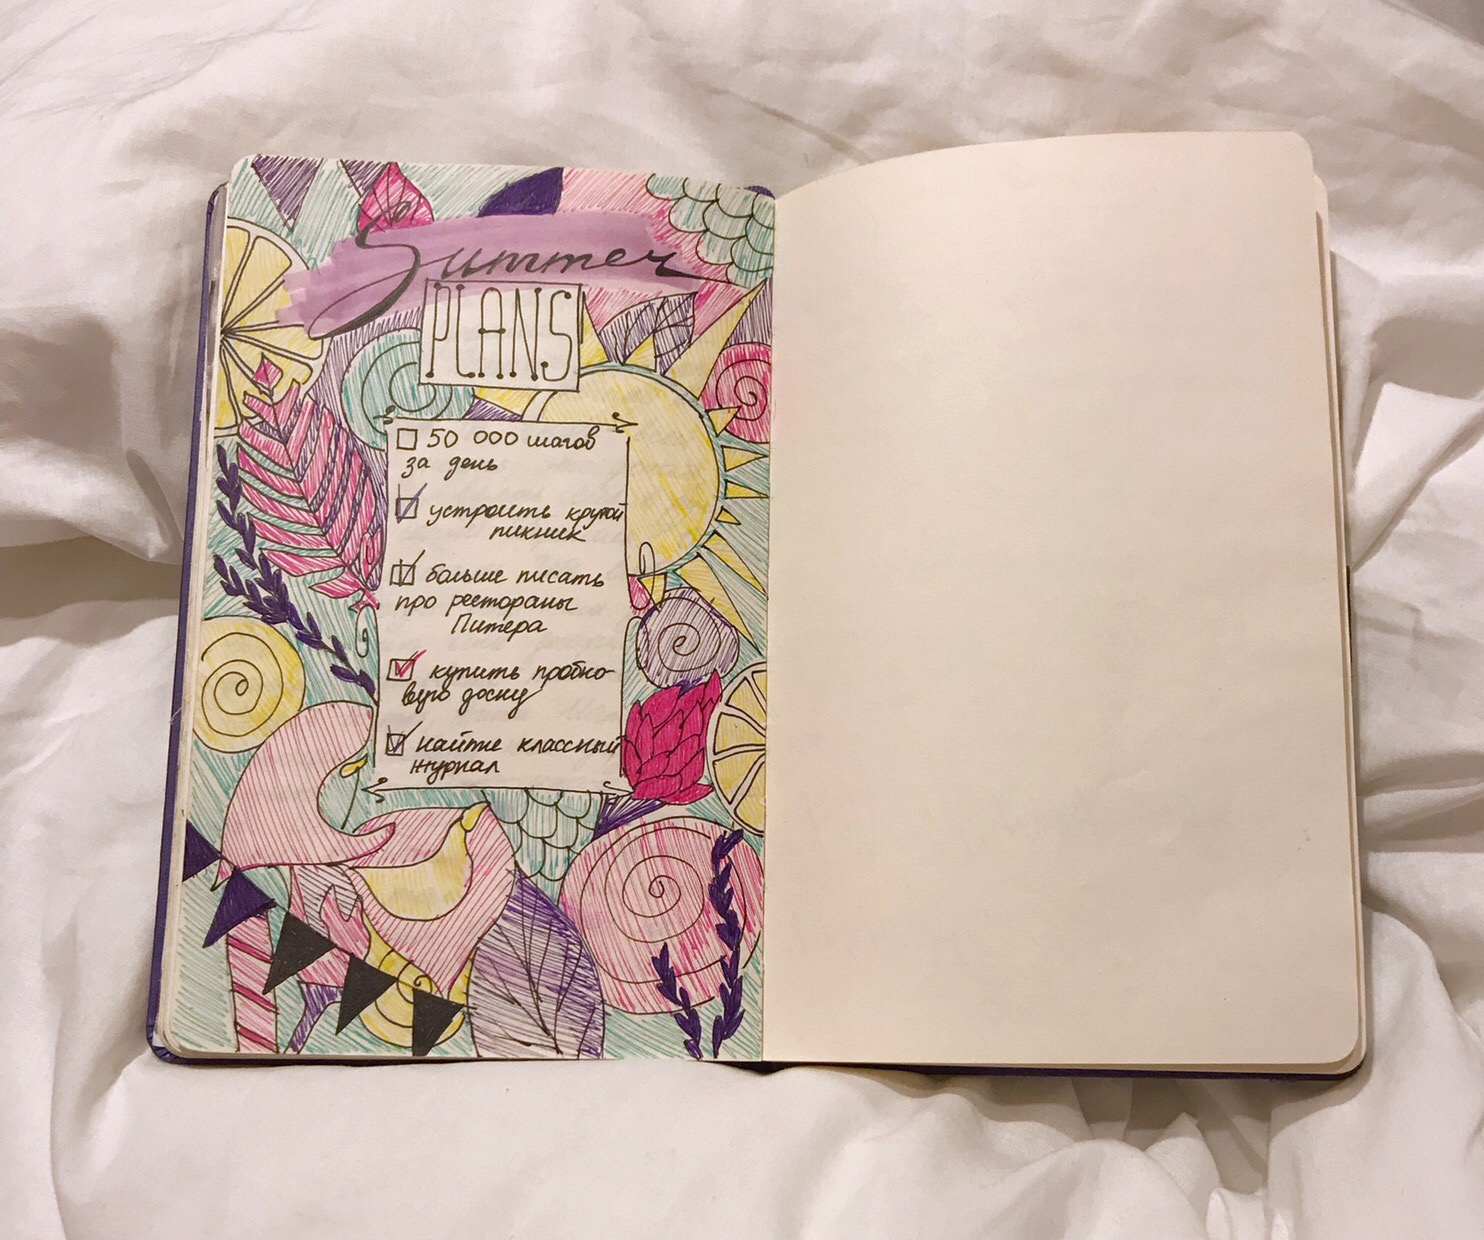 Summer
PLANS
50 000 шагов
за день
устроить крутой
пикник
больше писать
про рестораны
Питера
купить пробко-
вую доску
найти классный
журнал